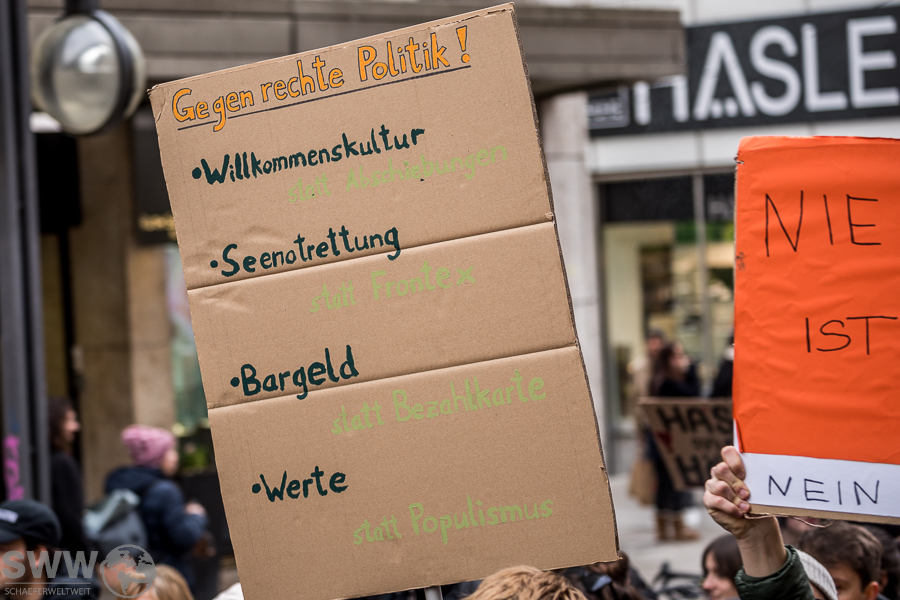 Gegen rechte Politik!
• Willkommenskultur
statt Abschiebungen
• Seenotrettung
statt Frontex
• Bargeld
statt Bezahlkarte
• Werte
statt Populismus
HÄSLE
NIE
IST
NEIN
HASS
SWW
SCHAEFERWELTWEIT